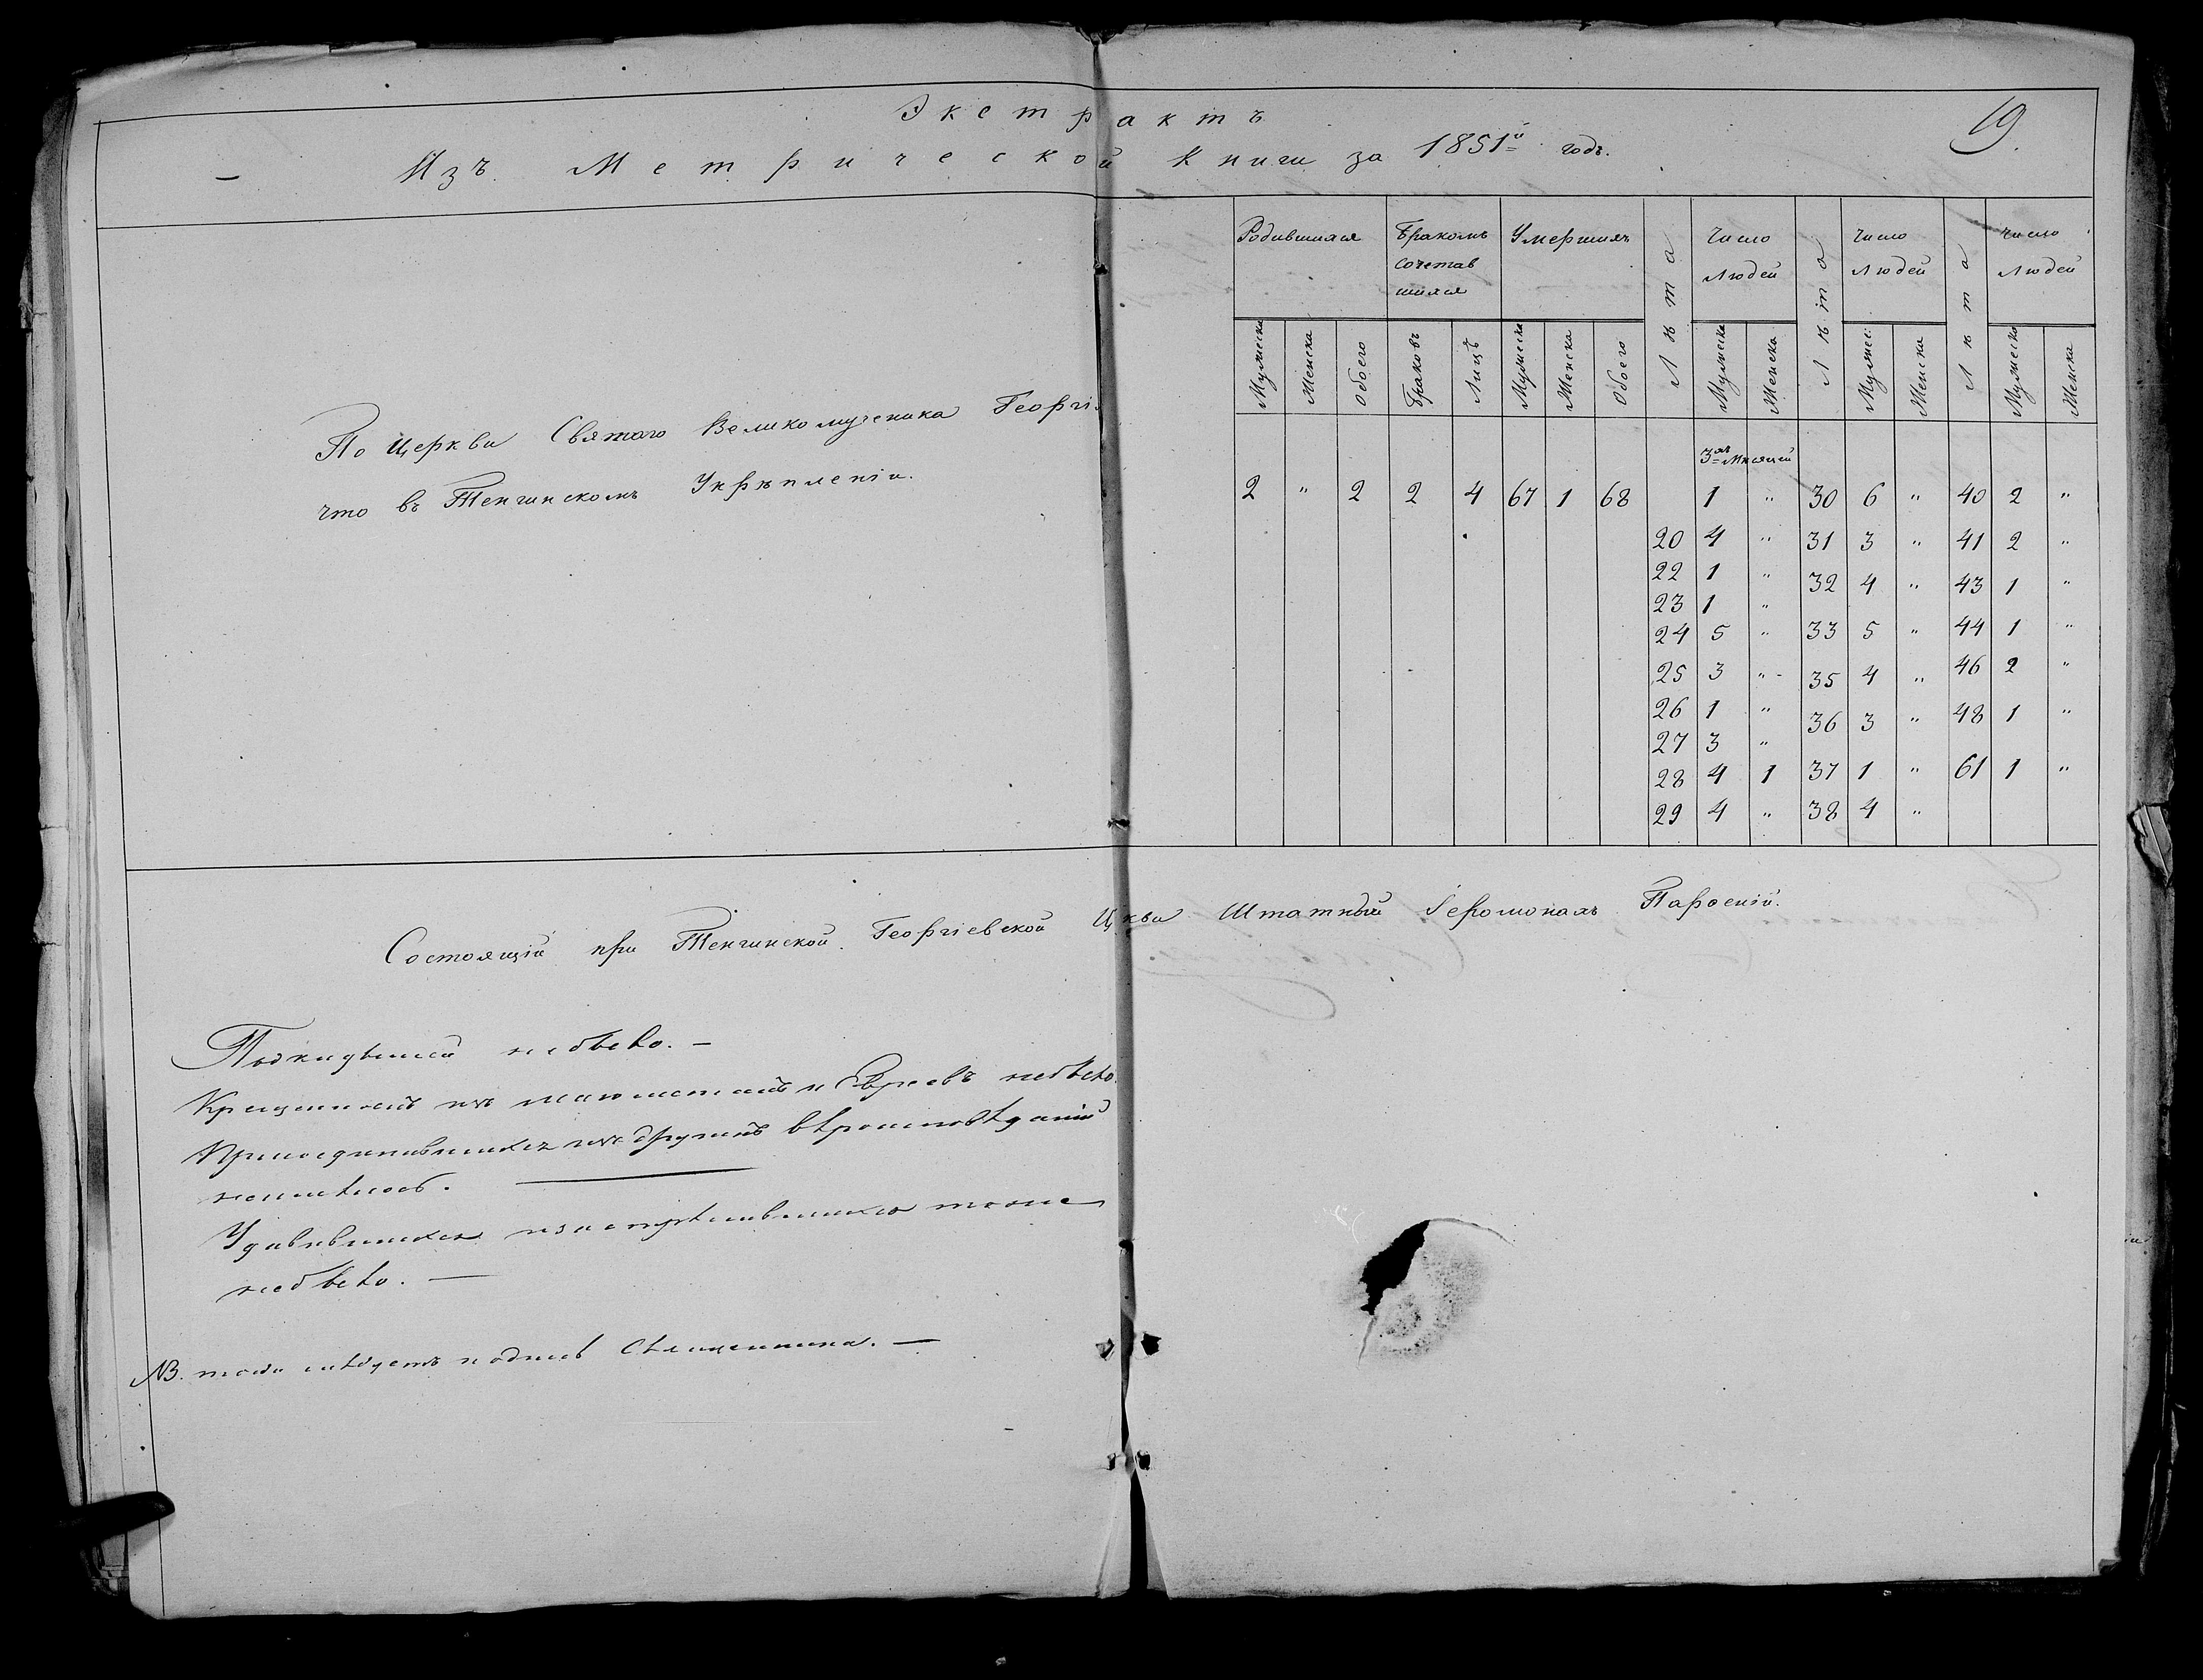 Экстрактъ
19.
Изъ Метрической Книги за 1851й годъ.
Родившихся Бракомъ Умершихъ Лѣта Число Лѣта Число Лѣта число
сочетав Людей Людей Людей
шихся
Мужеска Женска Обоего Браковъ Лицъ Мужеска Женска Обоего Мужеска Женска Мужес: Женска Мужеско Женска
По Церкви Святаго Великомученика Георгі
что въ Тенгинскомъ Укрѣпленіи.
3хъ Мѣсяцей
2 " 2 2 4 67 1 68 1 " 30 6 " 40 2 "
20 4 " 31 3 " 41 2 "
22 1 " 32 4 " 43 1 "
23 1 "
24 5 " 33 5 " 44 1 "
25 3 " 35 4 " 46 2 "
26 1 " 36 3 " 48 1 "
27 3 "
28 4 1 37 1 " 61 1 "
29 4 " 38 4 "
Состоящій при Тенгинской Георгіевской Цркви Штатный Іеромонахъ Парѳеній.
Подкидышей небыло. –
Крещенныхъ изъ магометанъ и Евреевъ небыло.
Присоединившихся изъ другихъ вѣроисповѣданій
неимѣлось. —
Удавившихся и застрѣлившихся тоже
небыло. —
NB. тоди слѣдуетъ подпись Священника. —